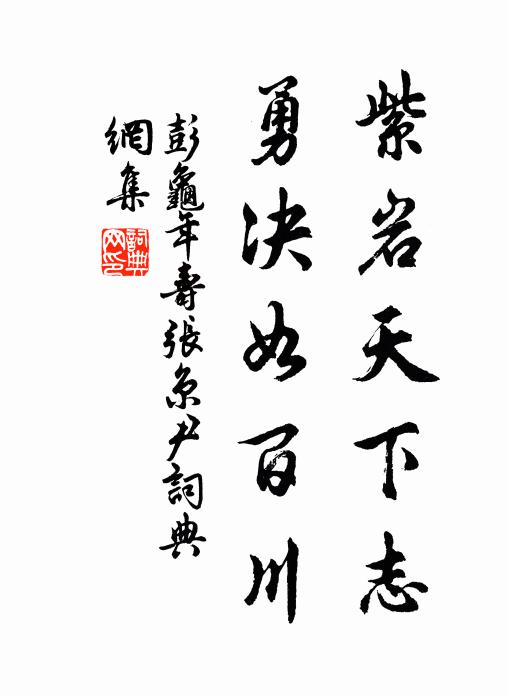 紫岩天下志
勇决如百川
彭龜年壽張京尹詞典
網集
詞典
网印